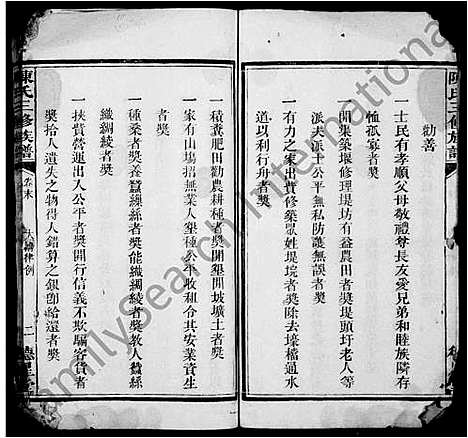 勸善
一士民有孝順父母敬禮尊長友愛兄弟和睦族隣存
恤孤寡者奬
一開集築堰修理堤坊有益農田者奬堤頭圩老人等
派夫派土公平無私防護無誤者奬
一有力之家出費修築眾姓堤垸者奬除去壕檔通水
道以利行舟者奬
一積糞肥田勸農耕種者奬開墾閒坡壙土者奬
一家有山塲招無業人墾種公平收租令其安業資生
者奬
一種桑者奬養蠶繰絲者奬能織綢綾者奬教人蠶絲
織綢綾者奬
一挾貲營運出入公平者奬開行信義不欺騙客貲者
奬拾人遺失之物得人錯算之銀卽給還者奬
陳氏三修族譜
卷末
大清律例
二
陳氏三修族譜
FamilySearch International